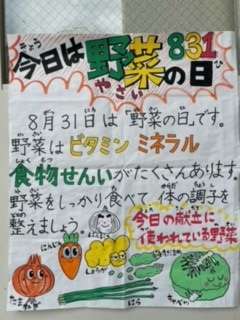 きょう
今日は野菜の日
やさい
831
ひ
8月31日は"野菜の日"です。
野菜はビタミン ミネラル
食物せんいがたくさんあります。
野菜をしっかり食べて、体の調子を
整えましょう。
今日の献立に
使われている野菜
にんじん
しょうが
にら
たまねぎ
キャベツ